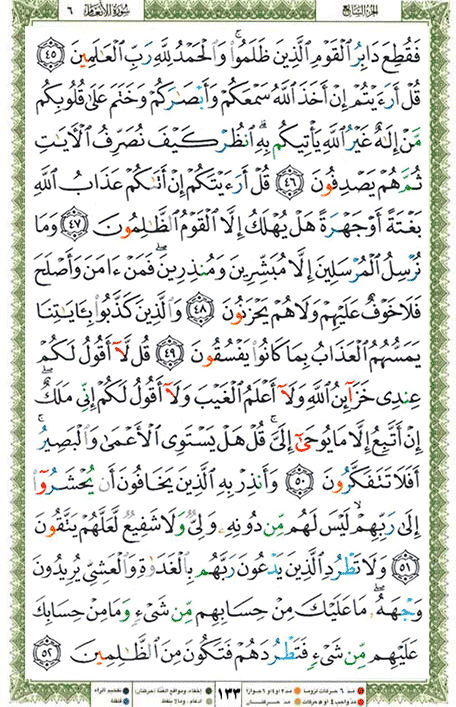 الجزء السابع
سورة الأنعام
٦
فَقُطِعَ دَابِرُ ٱلْقَوْمِ ٱلَّذِينَ ظَلَمُوا۟ۚ وَٱلْحَمْدُ لِلَّهِ رَبِّ ٱلْعَٰلَمِينَ ٤٥
قُلْ أَرَءَيْتُمْ إِنْ أَخَذَ ٱللَّهُ سَمْعَكُمْ وَأَبْصَٰرَكُمْ وَخَتَمَ عَلَىٰ قُلُوبِكُم
مَّنْ إِلَٰهٌ غَيْرُ ٱللَّهِ يَأْتِيكُم بِهِۗ ٱنظُرْ كَيْفَ نُصَرِّفُ ٱلْءَايَٰتِ
ثُمَّ هُمْ يَصْدِفُونَ ٤٦ قُلْ أَرَءَيْتَكُمْ إِنْ أَتَىٰكُمْ عَذَابُ ٱللَّهِ
بَغْتَةً أَوْ جَهْرَةً هَلْ يُهْلَكُ إِلَّا ٱلْقَوْمُ ٱلظَّٰلِمُونَ ٤٧ وَمَا
نُرْسِلُ ٱلْمُرْسَلِينَ إِلَّا مُبَشِّرِينَ وَمُنذِرِينَۖ فَمَنْ ءَامَنَ وَأَصْلَحَ
فَلَا خَوْفٌ عَلَيْهِمْ وَلَا هُمْ يَحْزَنُونَ ٤٨ وَٱلَّذِينَ كَذَّبُوا۟ بِـَٔايَٰتِنَا
يَمَسُّهُمُ ٱلْعَذَابُ بِمَا كَانُوا۟ يَفْسُقُونَ ٤٩ قُل لَّآ أَقُولُ لَكُمْ
عِندِى خَزَآئِنُ ٱللَّهِ وَلَآ أَعْلَمُ ٱلْغَيْبَ وَلَآ أَقُولُ لَكُمْ إِنِّى مَلَكٌۖ
إِنْ أَتَّبِعُ إِلَّا مَا يُوحَىٰٓ إِلَىَّۚ قُلْ هَلْ يَسْتَوِى ٱلْأَعْمَىٰ وَٱلْبَصِيرُۚ
أَفَلَا تَتَفَكَّرُونَ ٥٠ وَأَنذِرْ بِهِ ٱلَّذِينَ يَخَافُونَ أَن يُحْشَرُوٓا۟
إِلَىٰ رَبِّهِمْۙ لَيْسَ لَهُم مِّن دُونِهِۦ وَلِىٌّ وَلَا شَفِيعٌ لَّعَلَّهُمْ يَتَّقُونَ
٥١ وَلَا تَطْرُدِ ٱلَّذِينَ يَدْعُونَ رَبَّهُم بِٱلْغَدَوٰةِ وَٱلْعَشِىِّ يُرِيدُونَ
وَجْهَهُۥۖ مَا عَلَيْكَ مِنْ حِسَابِهِم مِّن شَىْءٍ وَمَا مِنْ حِسَابِكَ
عَلَيْهِم مِّن شَىْءٍ فَتَطْرُدَهُمْ فَتَكُونَ مِنَ ٱلظَّٰلِمِينَ ٥٢
١٣٣